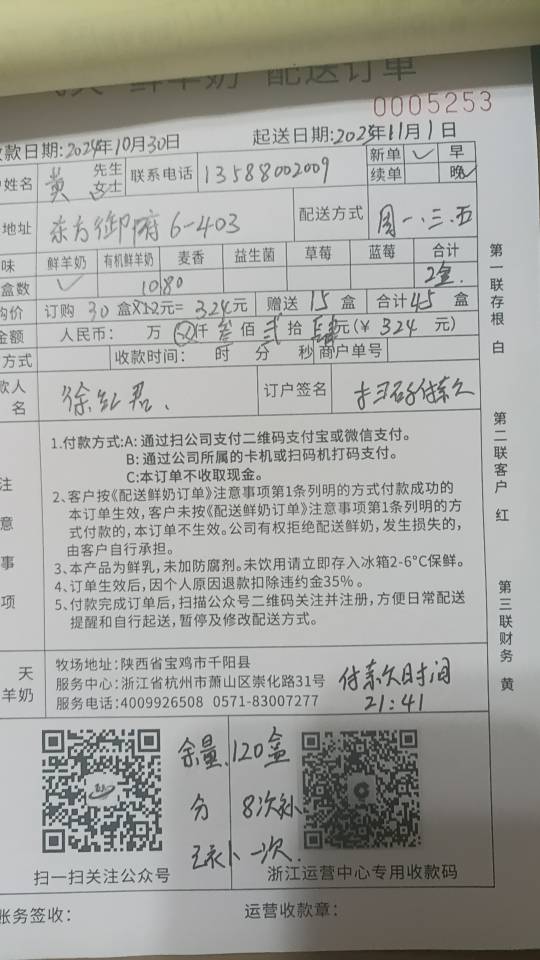 鲜羊奶 配送订单
0005253
款日期:2024年10月30日
起送日期:2023年11月1日
姓名 黄 先生 女士 联系电话 13588002009 新单 ✓ 早
续单 晚✓
地址 东方御府6-403 配送方式 周一.三.五
味 鲜羊奶 有机鲜羊奶 麦香 益生菌 草莓 蓝莓 合计
盒数 ✓ 10.80 2盒
购价 订购 30 盒X12元= 324元 赠送 15 盒 合计45 盒
金额 人民币: 万 仟 叁 佰 贰 拾 肆元(¥ 324 元)
方式 收款时间: 时 分 秒 商户单号
款人
名 订户签名 扫码付款
注意事项
1.付款方式:A: 通过扫公司支付二维码支付宝或微信支付。
B: 通过公司所属的卡机或扫码机打码支付。
C:本订单不收取现金。
2、客户按《配送鲜奶订单》注意事项第1条列明的方式付款成功的
本订单生效,客户未按《配送鲜奶订单》注意事项第1条列明的方
式付款的,本订单不生效。公司有权拒绝配送鲜奶,发生损失的,
由客户自行承担。
3、本产品为鲜乳,未加防腐剂。未饮用请立即存入冰箱2-6°C保鲜。
4、订单生效后,因个人原因退款扣除违约金35%。
5、付款完成订单后,扫描公众号二维码关注并注册,方便日常配送
提醒和自行起送,暂停及修改配送方式。
天
羊奶
牧场地址:陕西省宝鸡市千阳县
服务中心:浙江省杭州市萧山区崇化路31号
服务电话:4009926508 0571-83007277
付款时间
21:41
余量.120盒
分 8次补
已补一次.
扫一扫关注公众号
浙江运营中心专用收款码
账务签收:
运营收款章:
第一联存根 白
第二联客户 红
第三联财务 黄